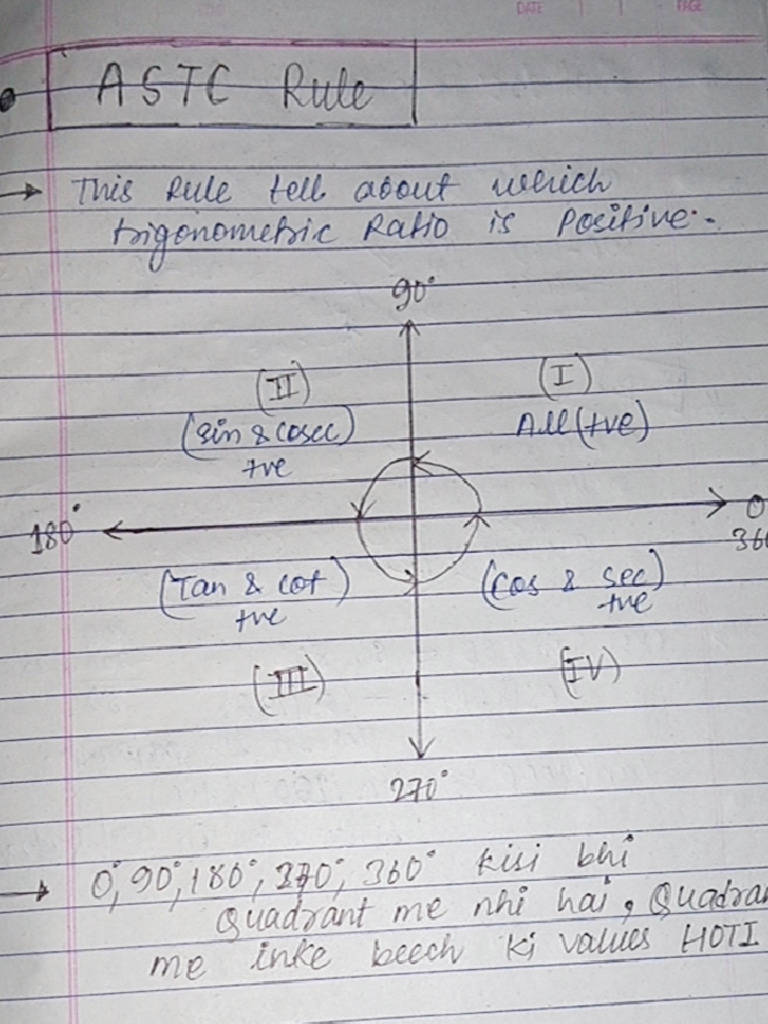 DATE PAGE
ASTC Rule
→ This Rule tell about which
trigonometric Ratio is Positive:-
90°
(II) (I)
(sin & cosec) All (+ve)
+ve
180° 0
36
(Tan & cot) (cos & sec)
+ve +ve
(III) (IV)
270°
→ 0°, 90°, 180°, 270°, 360° kisi bhi
Quadrant me nhi hai, Quadran
me inke beech ki values HOTI